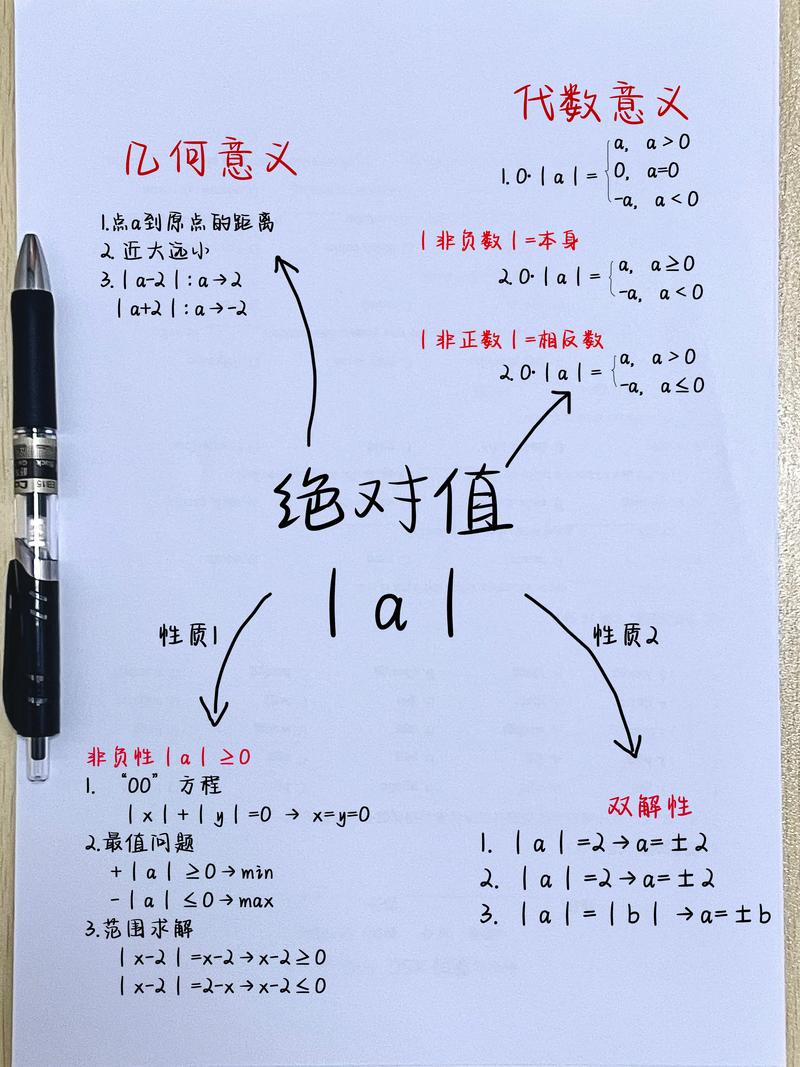 几何意义
1.点a到原点的距离
2.近大远小
3.|a-2|:a→2
|a+2|:a→-2
代数意义
1.0·|a|={a, a>0
0, a=0
-a, a<0
|非负数|=本身
2.0·|a|={a, a≥0
-a, a<0
|非正数|=相反数
2.0·|a|={a, a>0
-a, a≤0
绝对值
|a|
性质1
性质2
非负性|a|≥0
1. “00” 方程
|x|+|y|=0 → x=y=0
2.最值问题
+|a|≥0→min
-|a|≤0→max
3.范围求解
|x-2|=x-2→x-2≥0
|x-2|=2-x→x-2≤0
双解性
1. |a|=2→a=±2
2. |a|=2→a=±2
3. |a|=|b|→a=±b